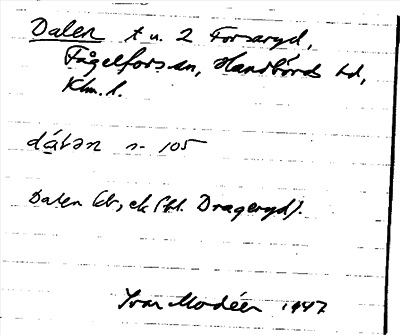 Dalen t u. 2 Forsaryd,
Fågelfors sn, Handbörds hd,
Klm. l.
dɑ́ͅlən n- 105
Dalen (kt, ek (bl. Drageryd).
Ivar Modéer 1947